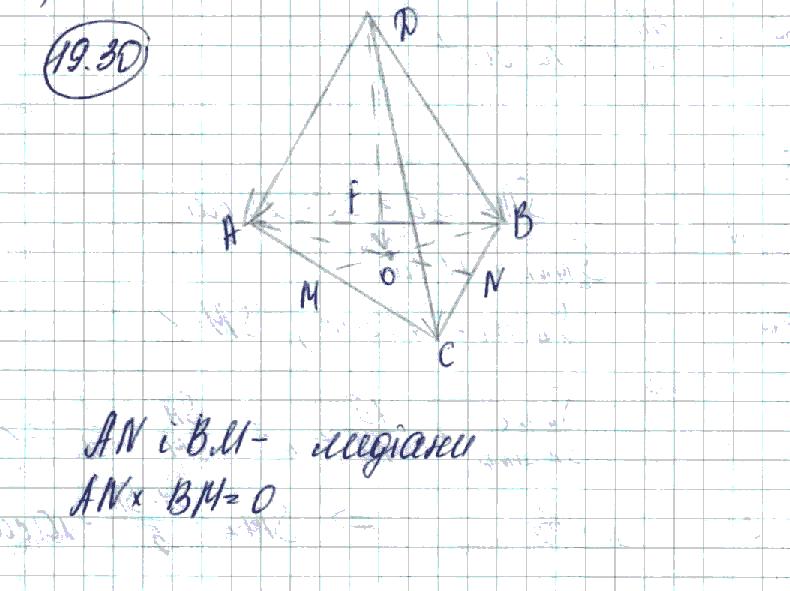 19.30
D
F
A
B
O
M
N
C
AN і BM - медіани
AN × BM = O